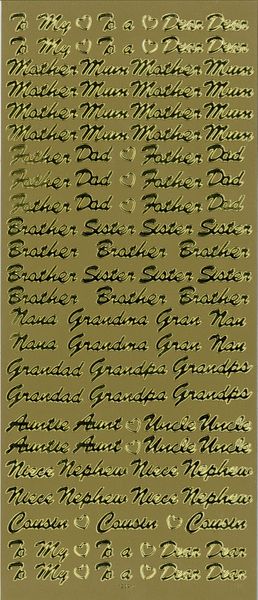 To My To a Dear Dear
To My To a Dear Dear
Mother Mum Mother Mum
Mother Mum Mother Mum
Mother Mum Mother Mum
Mother Mum Mother Mum
Father Dad Father Dad
Father Dad Father Dad
Father Dad Father Dad
Brother Sister Sister Sister
Brother Brother Brother
Brother Sister Sister Sister
Brother Brother Brother
Nana Grandma Gran Nan
Nana Grandma Gran Nan
Grandad Grandpa Grandps
Grandad Grandpa Grandps
Auntie Aunt Uncle Uncle
Auntie Aunt Uncle Uncle
Niece Nephew Niece Nephew
Niece Nephew Niece Nephew
Cousin Cousin Cousin
To My To a Dear Dear
To My To a Dear Dear